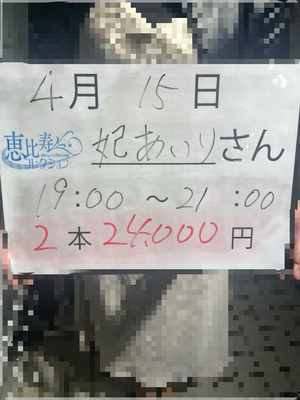 4月 15日
恵比寿
コレクション
妃あいりさん
19:00 ～ 21:00
2本 24.000円